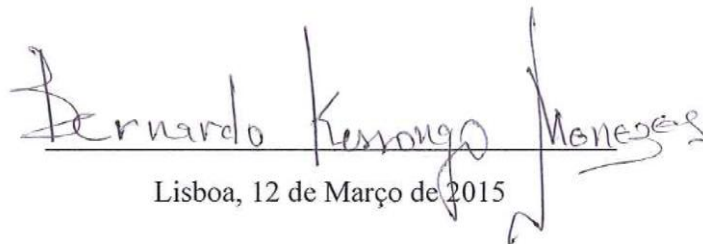 Bernardo Kessongo Menezes
Lisboa, 12 de Março de 2015